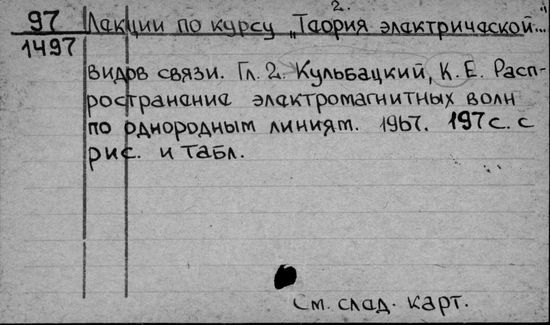 2.
97 Лекции по курсу „Теория электрической...“
1497
видов связи. Гл. 2. Кульбацкий, К. Е. Расп-
ространение электромагнитных волн
по однородным линиям. 1967. 197 с. с
рис. и табл.
См. след. карт.